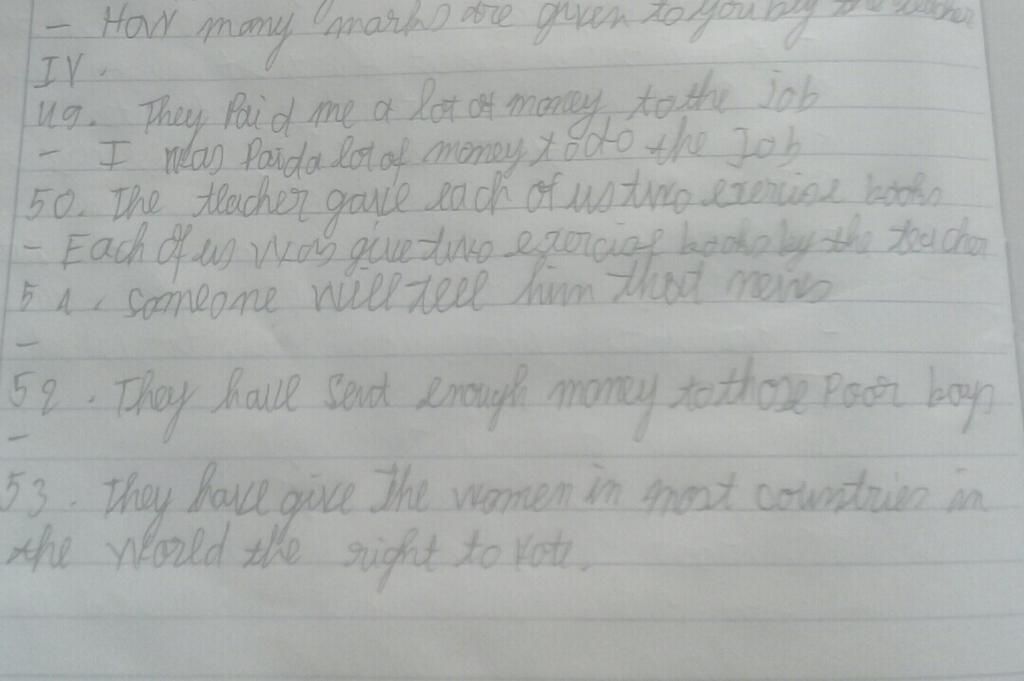 - How many marks are given to you by the teacher
IV.
49. They Paid me a lot of money to the Job
- I was Paid a lot of money to do the Job
50. The teacher gave each of us two exercise books
- Each of us was give two exercise books by the teacher
51. someone will tell him that news
-
52. They have sent enough money to those Poor boys
-
53. They have give the women in most countries in
the world the right to vote.